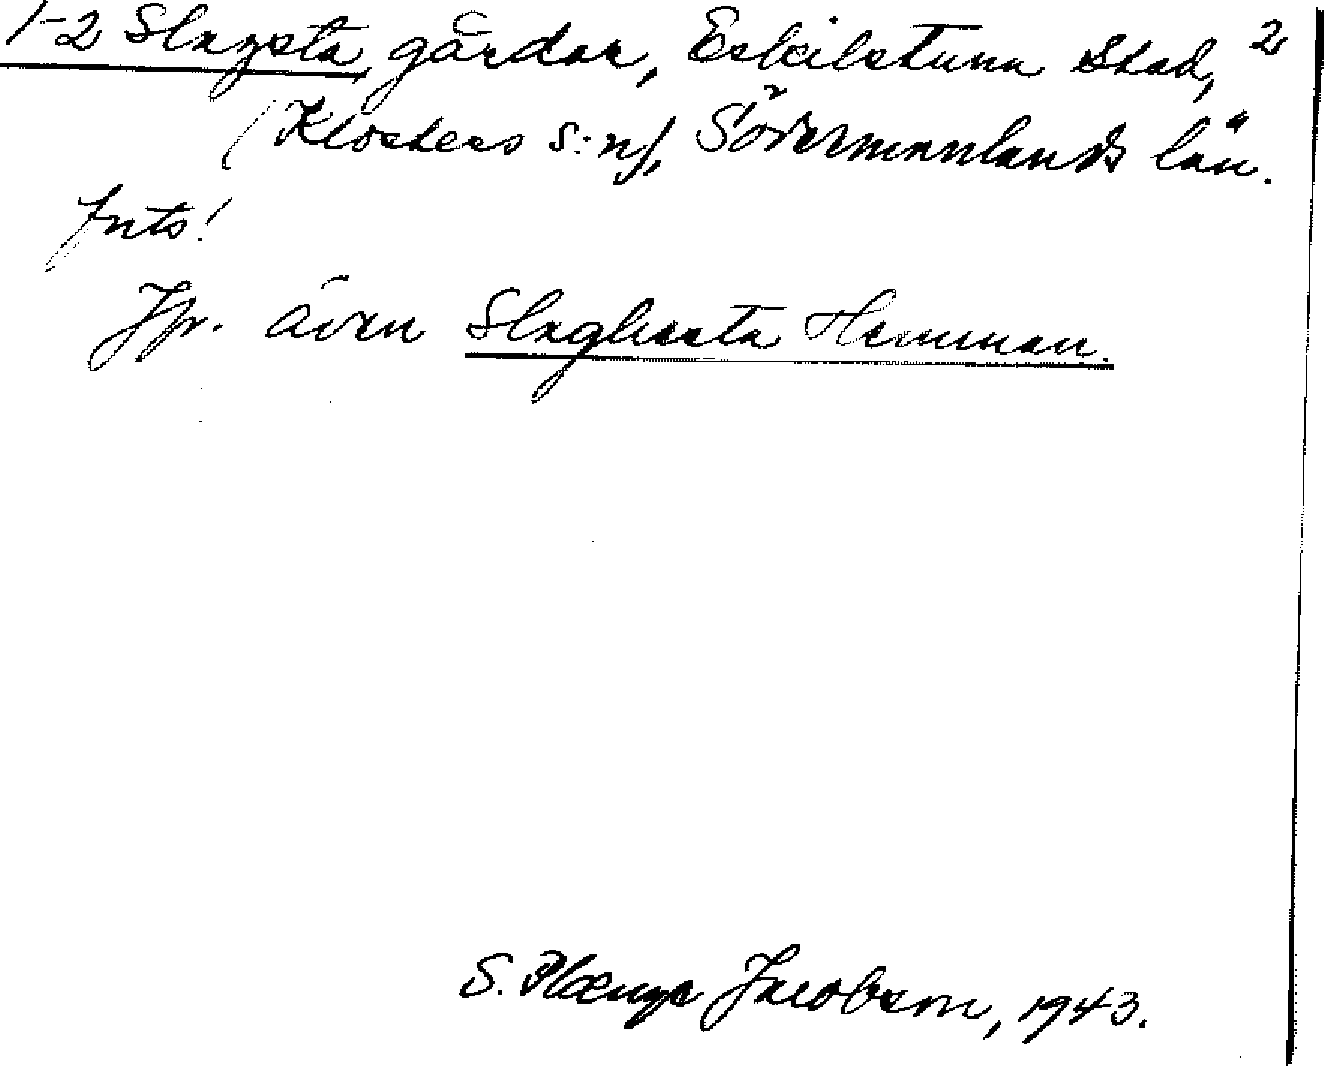 1-2 Slagsta, gårdar, Eskilstuna Stad, 2
(Klosters s:n), Södermanlands län.
Jfr. även Slaghasta Hemman.
S. Jacobson, 1943.